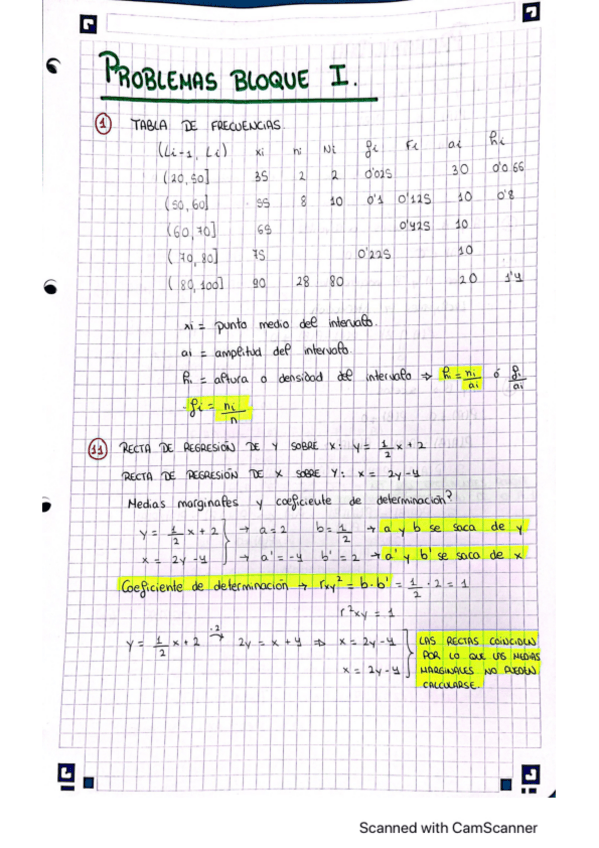 PROBLEMAS BLOQUE I.
1 TABLA DE FRECUENCIAS.
(Li-1, Li) xi ni Ni fi Fi ai hi
(20, 50] 35 2 2 0'025 30 0'066
(50, 60] 55 8 10 0'1 0'125 10 0'8
(60, 70] 65 0'425 10
(70, 80] 75 0'225 10
(80, 100] 90 28 80 20 1'4
xi = punto medio del intervalo.
ai = amplitud del intervalo.
hi = altura o densidad del intervalo ⇒ hi = ni/ai ó fi/ai
· fi = ni/n
11 RECTA DE REGRESIÓN DE Y SOBRE X: y = 1/2 x + 2
RECTA DE REGRESIÓN DE X SOBRE Y: x = 2y - 4
Medias marginales y coeficiente de determinación?
y = 1/2 x + 2 } → a = 2 b = 1/2 → a y b se saca de y
x = 2y - 4 } → a' = -4 b' = 2 → a' y b' se saca de x
Coeficiente de determinación → rxy² = b · b' = 1/2 · 2 = 1
r²xy = 1
y = 1/2 x + 2 ·2→ 2y = x + 4 ⇒ x = 2y - 4 } LAS RECTAS COINCIDEN
POR LO QUE LAS MEDIAS
x = 2y - 4 MARGINALES NO PUEDEN
CALCULARSE.
Scanned with CamScanner